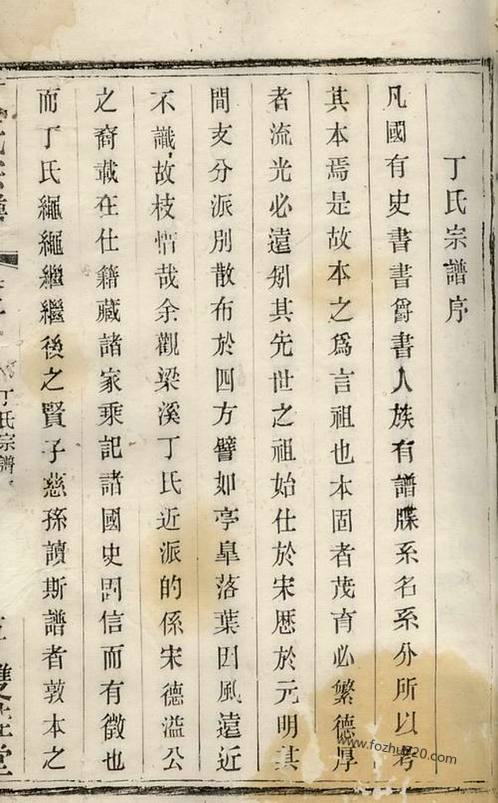 丁氏宗譜序
凡國有史書書爵書人族有譜牒系名系分所以考
其本焉是故本之爲言祖也本固者茂育必繁德厚
者流光必遠矧其先世之祖始仕於宋歷於元明其
間支分派別散布於四方譬如亭臯落葉因風遠近
不識故枝惜哉余觀梁溪丁氏近派的係宋德溢公
之裔載在仕籍藏諸家乘記諸國史固信而有徵也
而丁氏繩繩繼繼後之賢子慈孫讀斯譜者敦本之
丁氏宗譜
雙桂堂
www.fozhu920.com